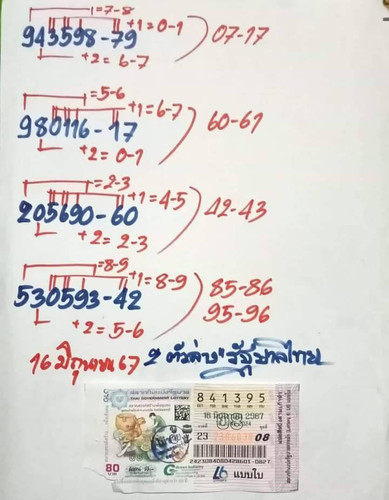 =7-8
+1=0-1
943598-79
07-17
+2=6-7
=5-6
+1=6-7
980116-17
60-61
+2=0-1
=2-3
+1=4-5
205690-60
42-43
+2=2-3
=8-9
+1=8-9
530593-42
85-86
95-96
+2=5-6
16 มิถุนายน 67 2 ตัวล่าง "รัฐบาลไทย
สลากกินแบ่งรัฐบาล
THAI GOVERNMENT LOTTERY
841395
16 มิถุนายน 2567
23
08
80
แบบใบ